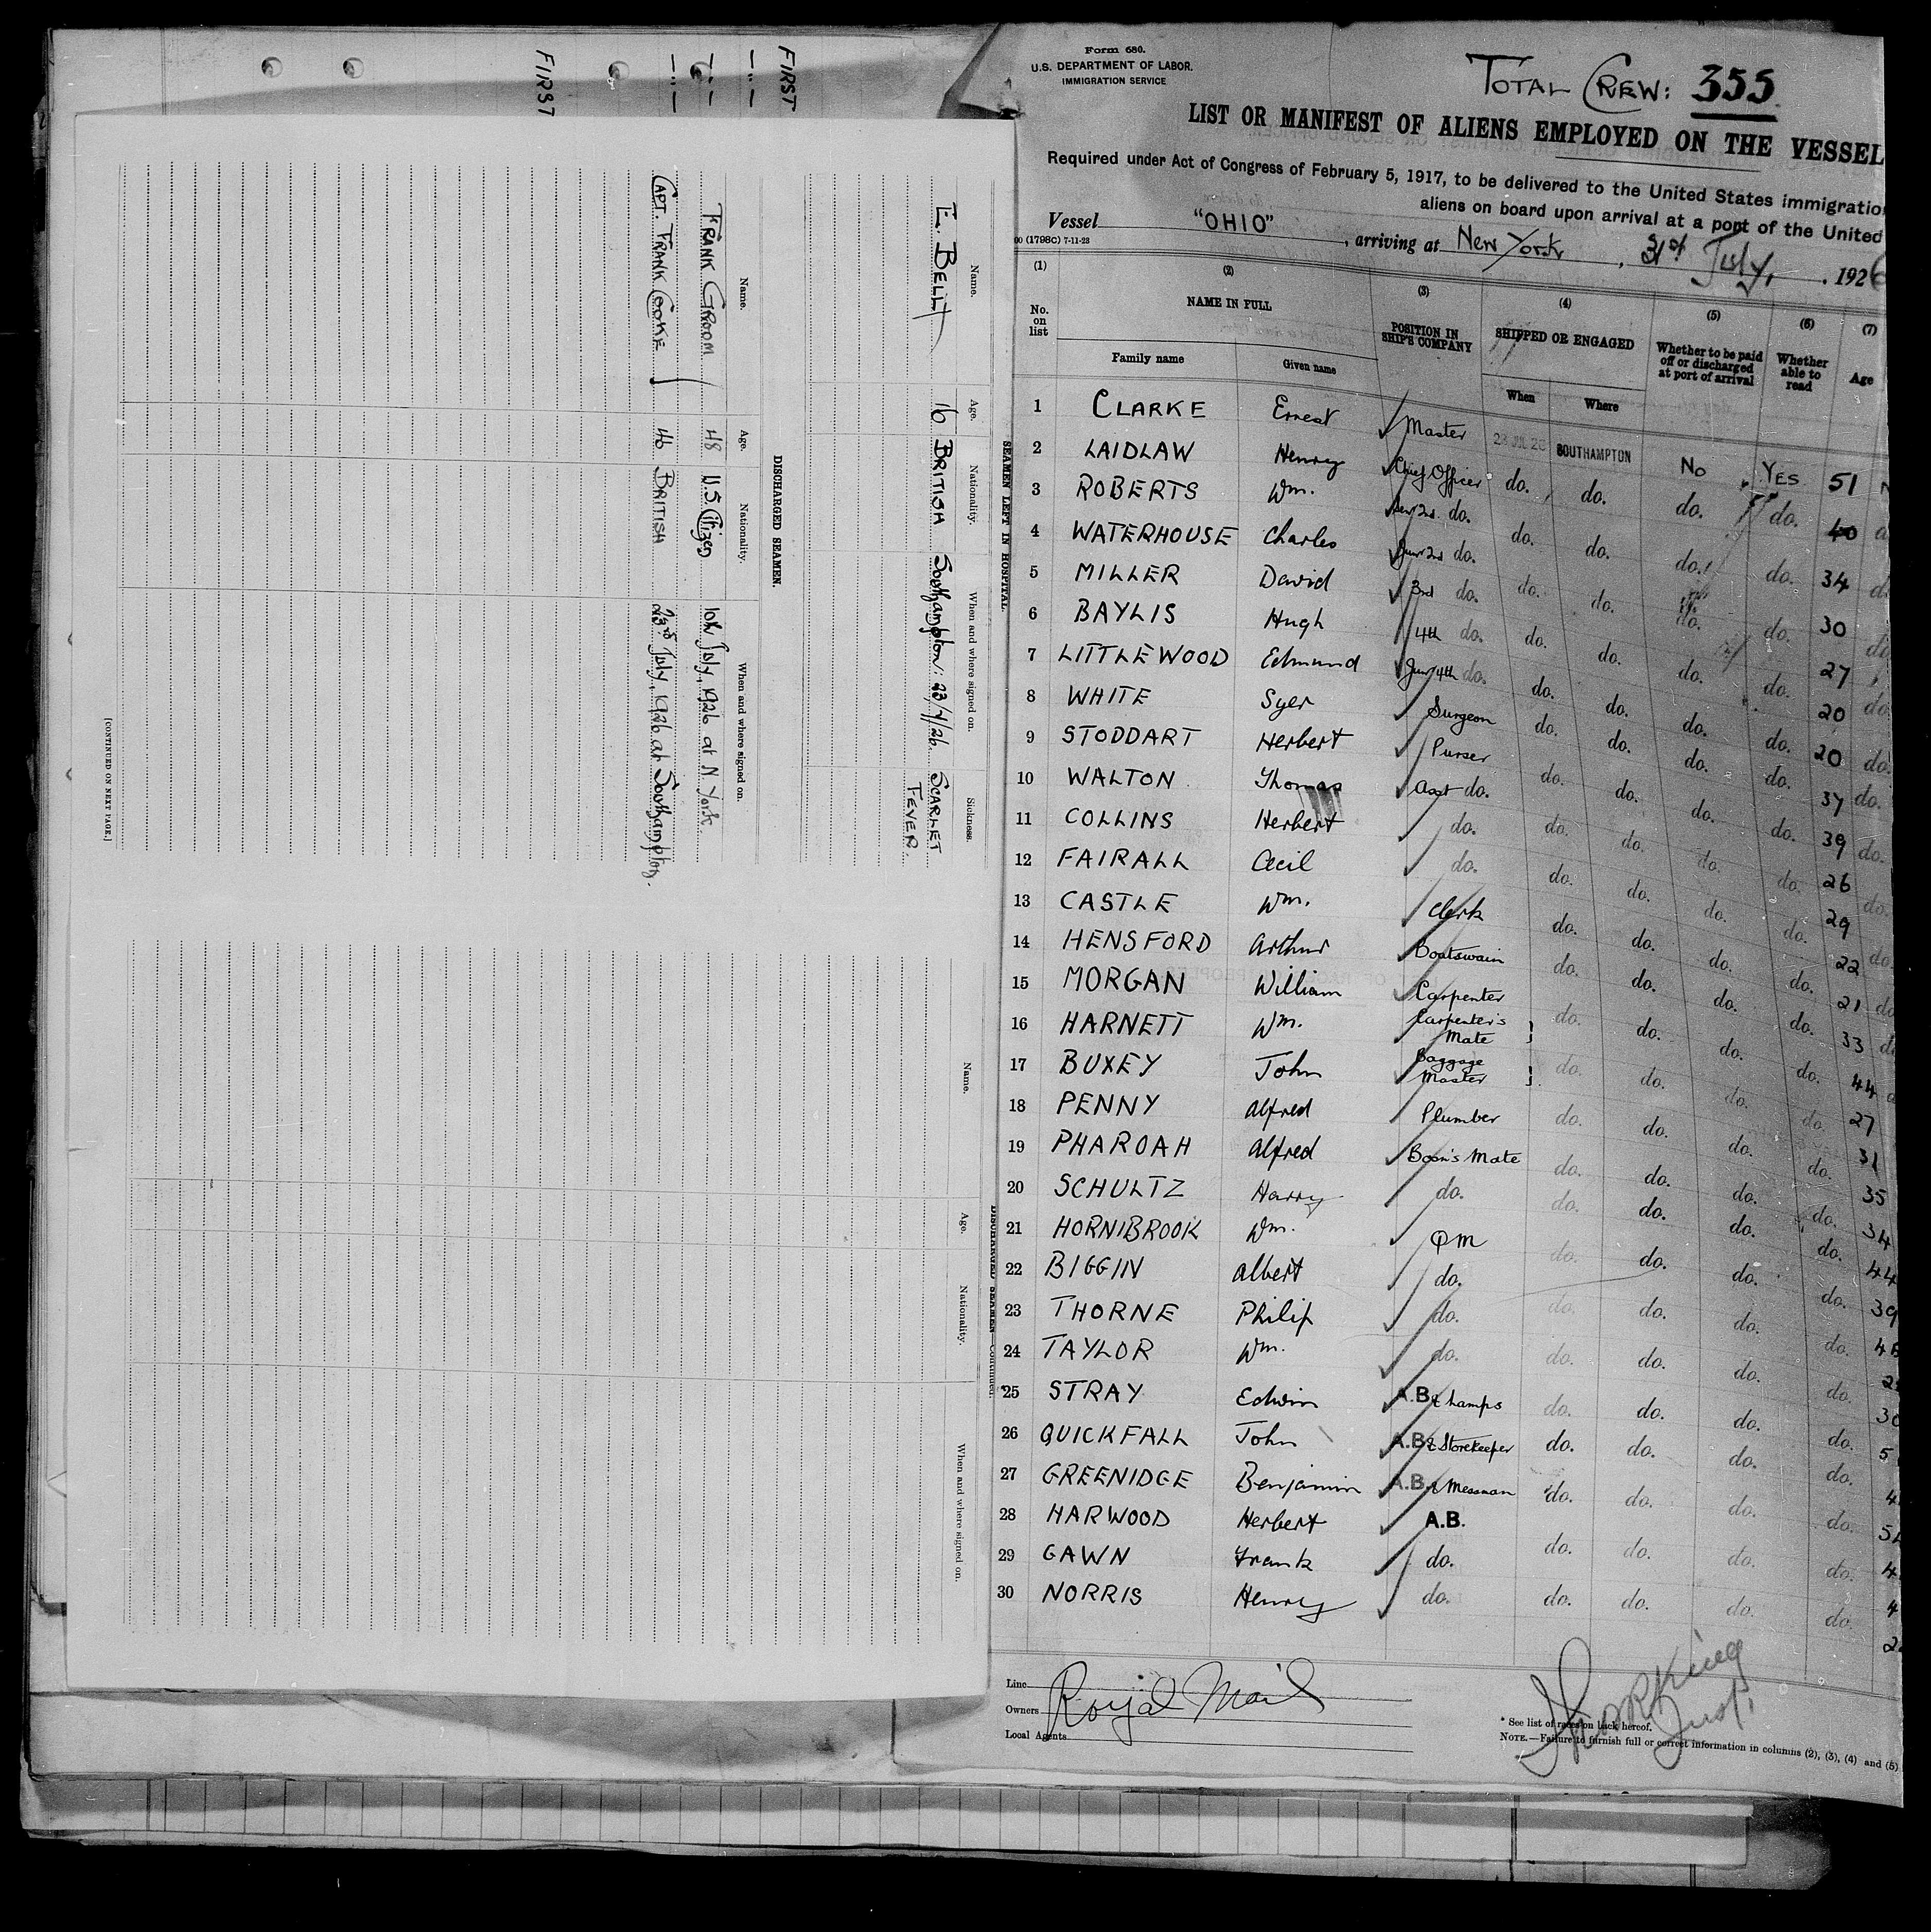 FIRST
FIRST
SEAMEN LEFT IN HOSPITAL.
Name. Age. Nationality. When and where signed on. Sickness.
E. BELL 16 BRITISH Southampton: 23/7/26. SCARLET
FEVER.
DISCHARGED SEAMEN.
Name. Age. Nationality. When and where signed on.
FRANK GROOM 48 U.S. Citizen 10th July, 1926 at N York.
CAPT. FRANK COOKE 46 BRITISH 23rd July, 1926 at Southampton.
[CONTINUED ON NEXT PAGE.]
DISCHARGED SEAMEN—continued.
Name. Age. Nationality. When and where signed on.
Form 680.
U.S. DEPARTMENT OF LABOR.
IMMIGRATION SERVICE
TOTAL CREW: 355
LIST OR MANIFEST OF ALIENS EMPLOYED ON THE VESSEL
Required under Act of Congress of February 5, 1917, to be delivered to the United States immigratio
aliens on board upon arrival at a port of the United
Vessel "OHIO", arriving at New York, 31st July, 1926
00 (1798C) 7-11-23
(1) (2) (3) (4) (5) (6) (7)
No. on list
NAME IN FULL
Family name Given name
POSITION IN SHIP'S COMPANY
SHIPPED OR ENGAGED
When Where
Whether to be paid off or discharged at port of arrival
Whether able to read
Age
1 CLARKE Ernest Master 23 JUL 26 SOUTHAMPTON No YES 51
2 LAIDLAW Henry Chief Officer do. do. do. do. 40
3 ROBERTS Wm. Senr 2nd do. do. do. do. do. 34
4 WATERHOUSE Charles Junr 2nd do. do. do. do. do. 30
5 MILLER David 3rd do. do. do. do. do. 27
6 BAYLIS Hugh 4th do. do. do. do. do. 20
7 LITTLEWOOD Edmund Junr 4th do. do. do. do. do. 20
8 WHITE Syer Surgeon do. do. do. do. 37
9 STODDART Herbert Purser do. do. do. do. 39
10 WALTON Thomas Asst do. do. do. do. do. 26
11 COLLINS Herbert do. do. do. do. do. 29
12 FAIRALL Cecil do. do. do. do. do. 22
13 CASTLE Wm. Clerk do. do. do. do. 21
14 HENSFORD Arthur Boatswain do. do. do. do. 33
15 MORGAN William Carpenter do. do. do. do. 44
16 HARNETT Wm. Carpenter's Mate do. do. do. do. 27
17 BUXEY John Baggage Master do. do. do. do. 31
18 PENNY Alfred Plumber do. do. do. do. 35
19 PHAROAH Alfred Bosn's Mate do. do. do. do. 34
20 SCHULTZ Harry do. do. do. do. do. 44
21 HORNIBROOK Wm. QM do. do. do. do. 39
22 BIGGIN Albert do. do. do. do. do.
23 THORNE Philip do. do. do. do. do.
24 TAYLOR Wm. do. do. do. do. do.
25 STRAY Edwin A.B. & Lamps do. do. do. do.
26 QUICKFALL John A.B. & Storekeeper do. do. do. do.
27 GREENIDGE Benjamin A.B. & Messman do. do. do. do.
28 HARWOOD Herbert A.B. do. do. do. do.
29 GAWN Frank do. do. do. do. do.
30 NORRIS Henry do.
Line
Owners Royal Mail
Local Agents
* See list of races on back hereof.
NOTE.—Failure to furnish full or correct information in columns (2), (3), (4) and (5)